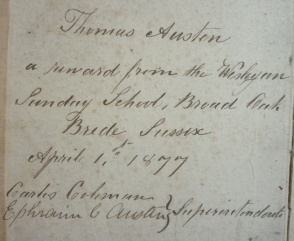 Thomas Austen
a reward from the Wesleyan
Sunday School, Broad Oak
Brede, Sussex
April 1st 1877
Curtis Coleman
Ephraim C Austin } Superintendents